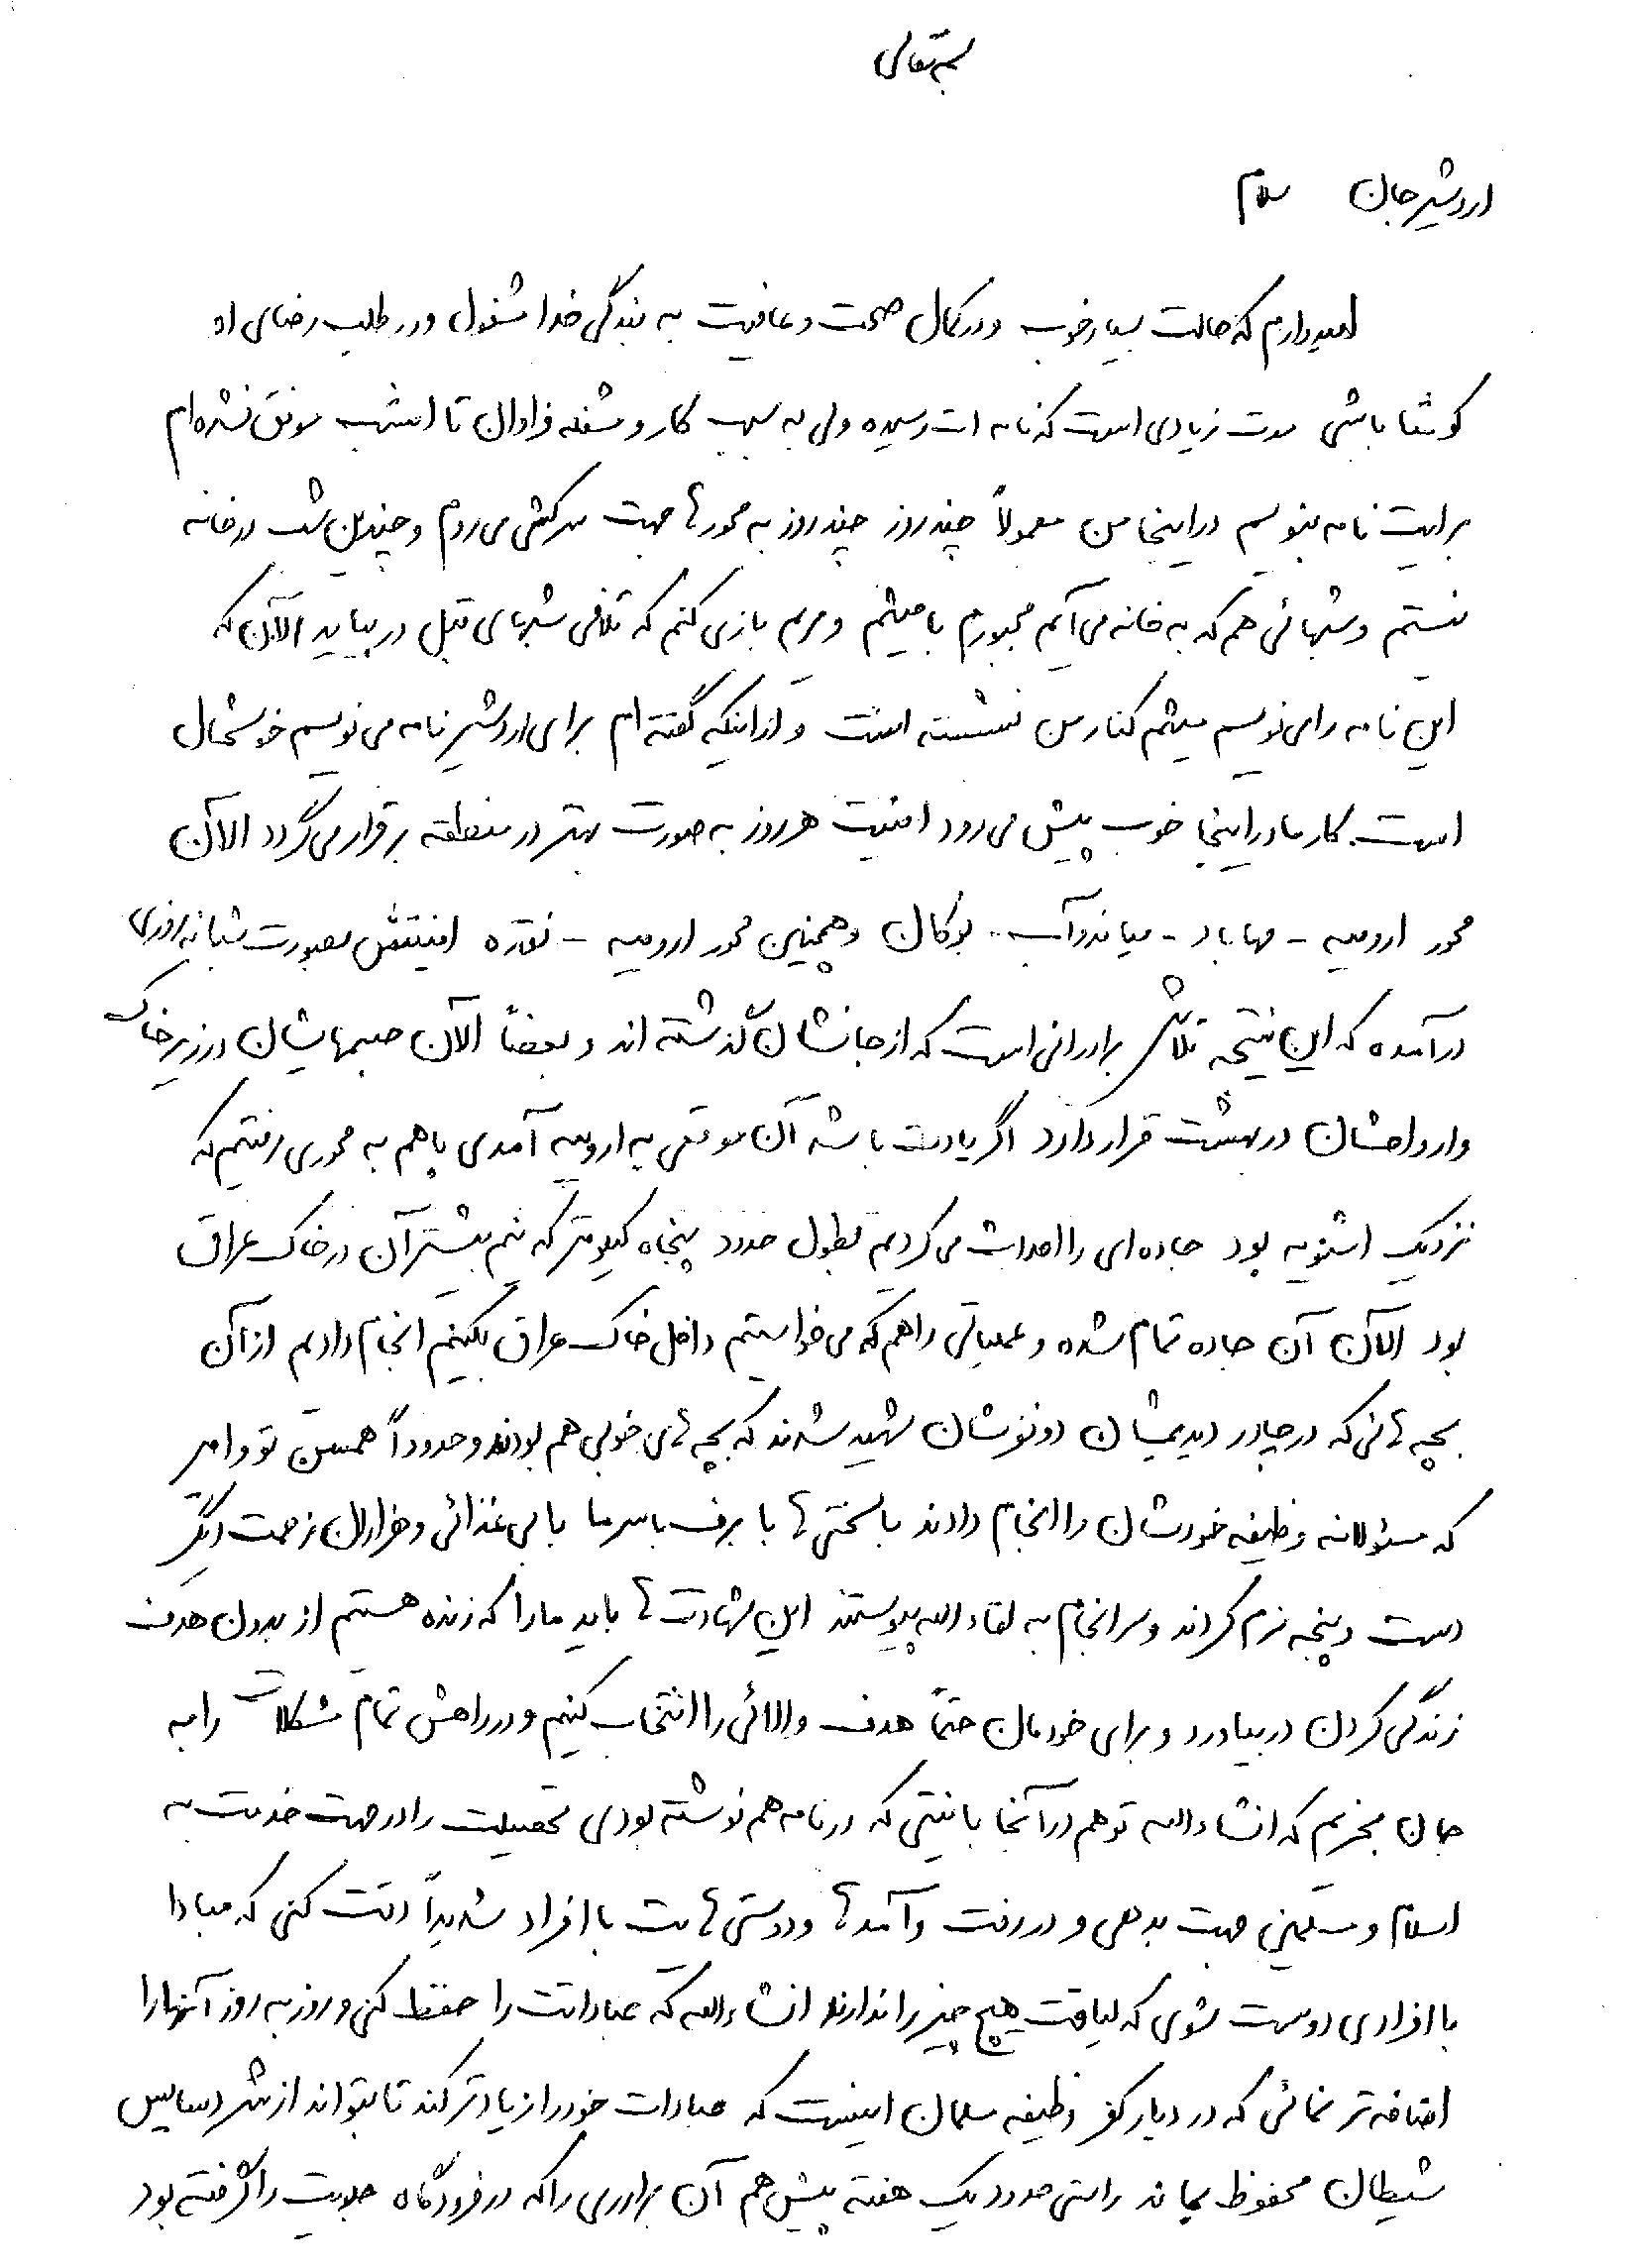 بسمه تعالی
اردشیر جان سلام
امیدوارم که حالت بسیار خوب و در کمال صحت و عافیت به بندگی خدا مشغول و در طلب رضای او
کوشا باشی مدت زیادی است که نامه ات رسیده ولی به سبب کار و مشغله فراوان تا امشب موفق نشده ام
برایت نامه بنویسم در اینجا من معمولاً چند روز چند روز به محورها جهت سرکشی می روم و چندین شب در خانه
نیستم و شبهائی هم که به خانه می آیم مجبورم با میثم و مریم بازی کنم که تلافی شبهای قبل در بیاید الآن که
این نامه را می نویسم میثم کنار من نشسته است و از اینکه گفته ام برای اردشیر نامه می نویسم خوشحال
است. کار ما در اینجا خوب پیش می رود امنیت هر روز به صورت بهتر در منطقه برقرار می گردد الآن
محور ارومیه - مهاباد - میاندوآب - بوکان و همچنین محور ارومیه - نقده امنیتش بصورت شبانه روزی
درآمده که این نتیجه تلاش برادرانی است که از جانشان گذشته اند و بعضاً الآن جسمهایشان در زیر خاک
و ارواحشان در بهشت قرار دارد اگر یادت باشه آن موقعی به ارومیه آمدی با هم به محوری رفتیم که
نزدیک اشنویه بود جاده ای را احداث می کردیم بطول حدود پنجاه کیلومتر که نیم بیشتر آن در خاک عراق
بود الآن آن جاده تمام شده و عملیاتی را هم که می خواستیم داخل خاک عراق بکنیم انجام دادیم از آن
بچه هائی که در چادر دیدیمشان دو نفرشان شهید شدند که بچه های خوبی هم بودند و حدوداً همسن تو و امیر
که مسئولانه وظیفه خودشان را انجام دادند با سختی ها با برف با سرما با بی غذائی و هزاران زحمت دیگر
دست و پنجه نرم کردند و سرانجام به لقاء الله پیوستند این شهادت ها باید ما را که زنده هستیم از بدون هدف
زندگی کردن در بیاورد و برای خودمان حتماً هدف والائی را انتخاب کنیم و در راهش تمام مشکلات را به
جان بخریم که انشاءالله تو هم در آنجا با نیتی که در نامه هم نوشته بودی تحصیلت را در جهت خدمت به
اسلام و مسلمین جهت بدهی و در رفت و آمدها و دوستی هایت با افراد شدیداً دقت کنی که مبادا
با افرادی دوست شوی که لیاقت هیچ چیز را ندارند انشاءالله که عباداتت را حفظ کنی و روز به روز آنها را
اضافه تر نمائی که در دیار کفر وظیفه مسلمان اینست که عبادات خود را زیادتر کند تا بتواند از شر دسایس
شیطان محفوظ بماند راستی حدود یک هفته پیش هم آن برادری را که در فرودگاه جلویت را گرفته بود